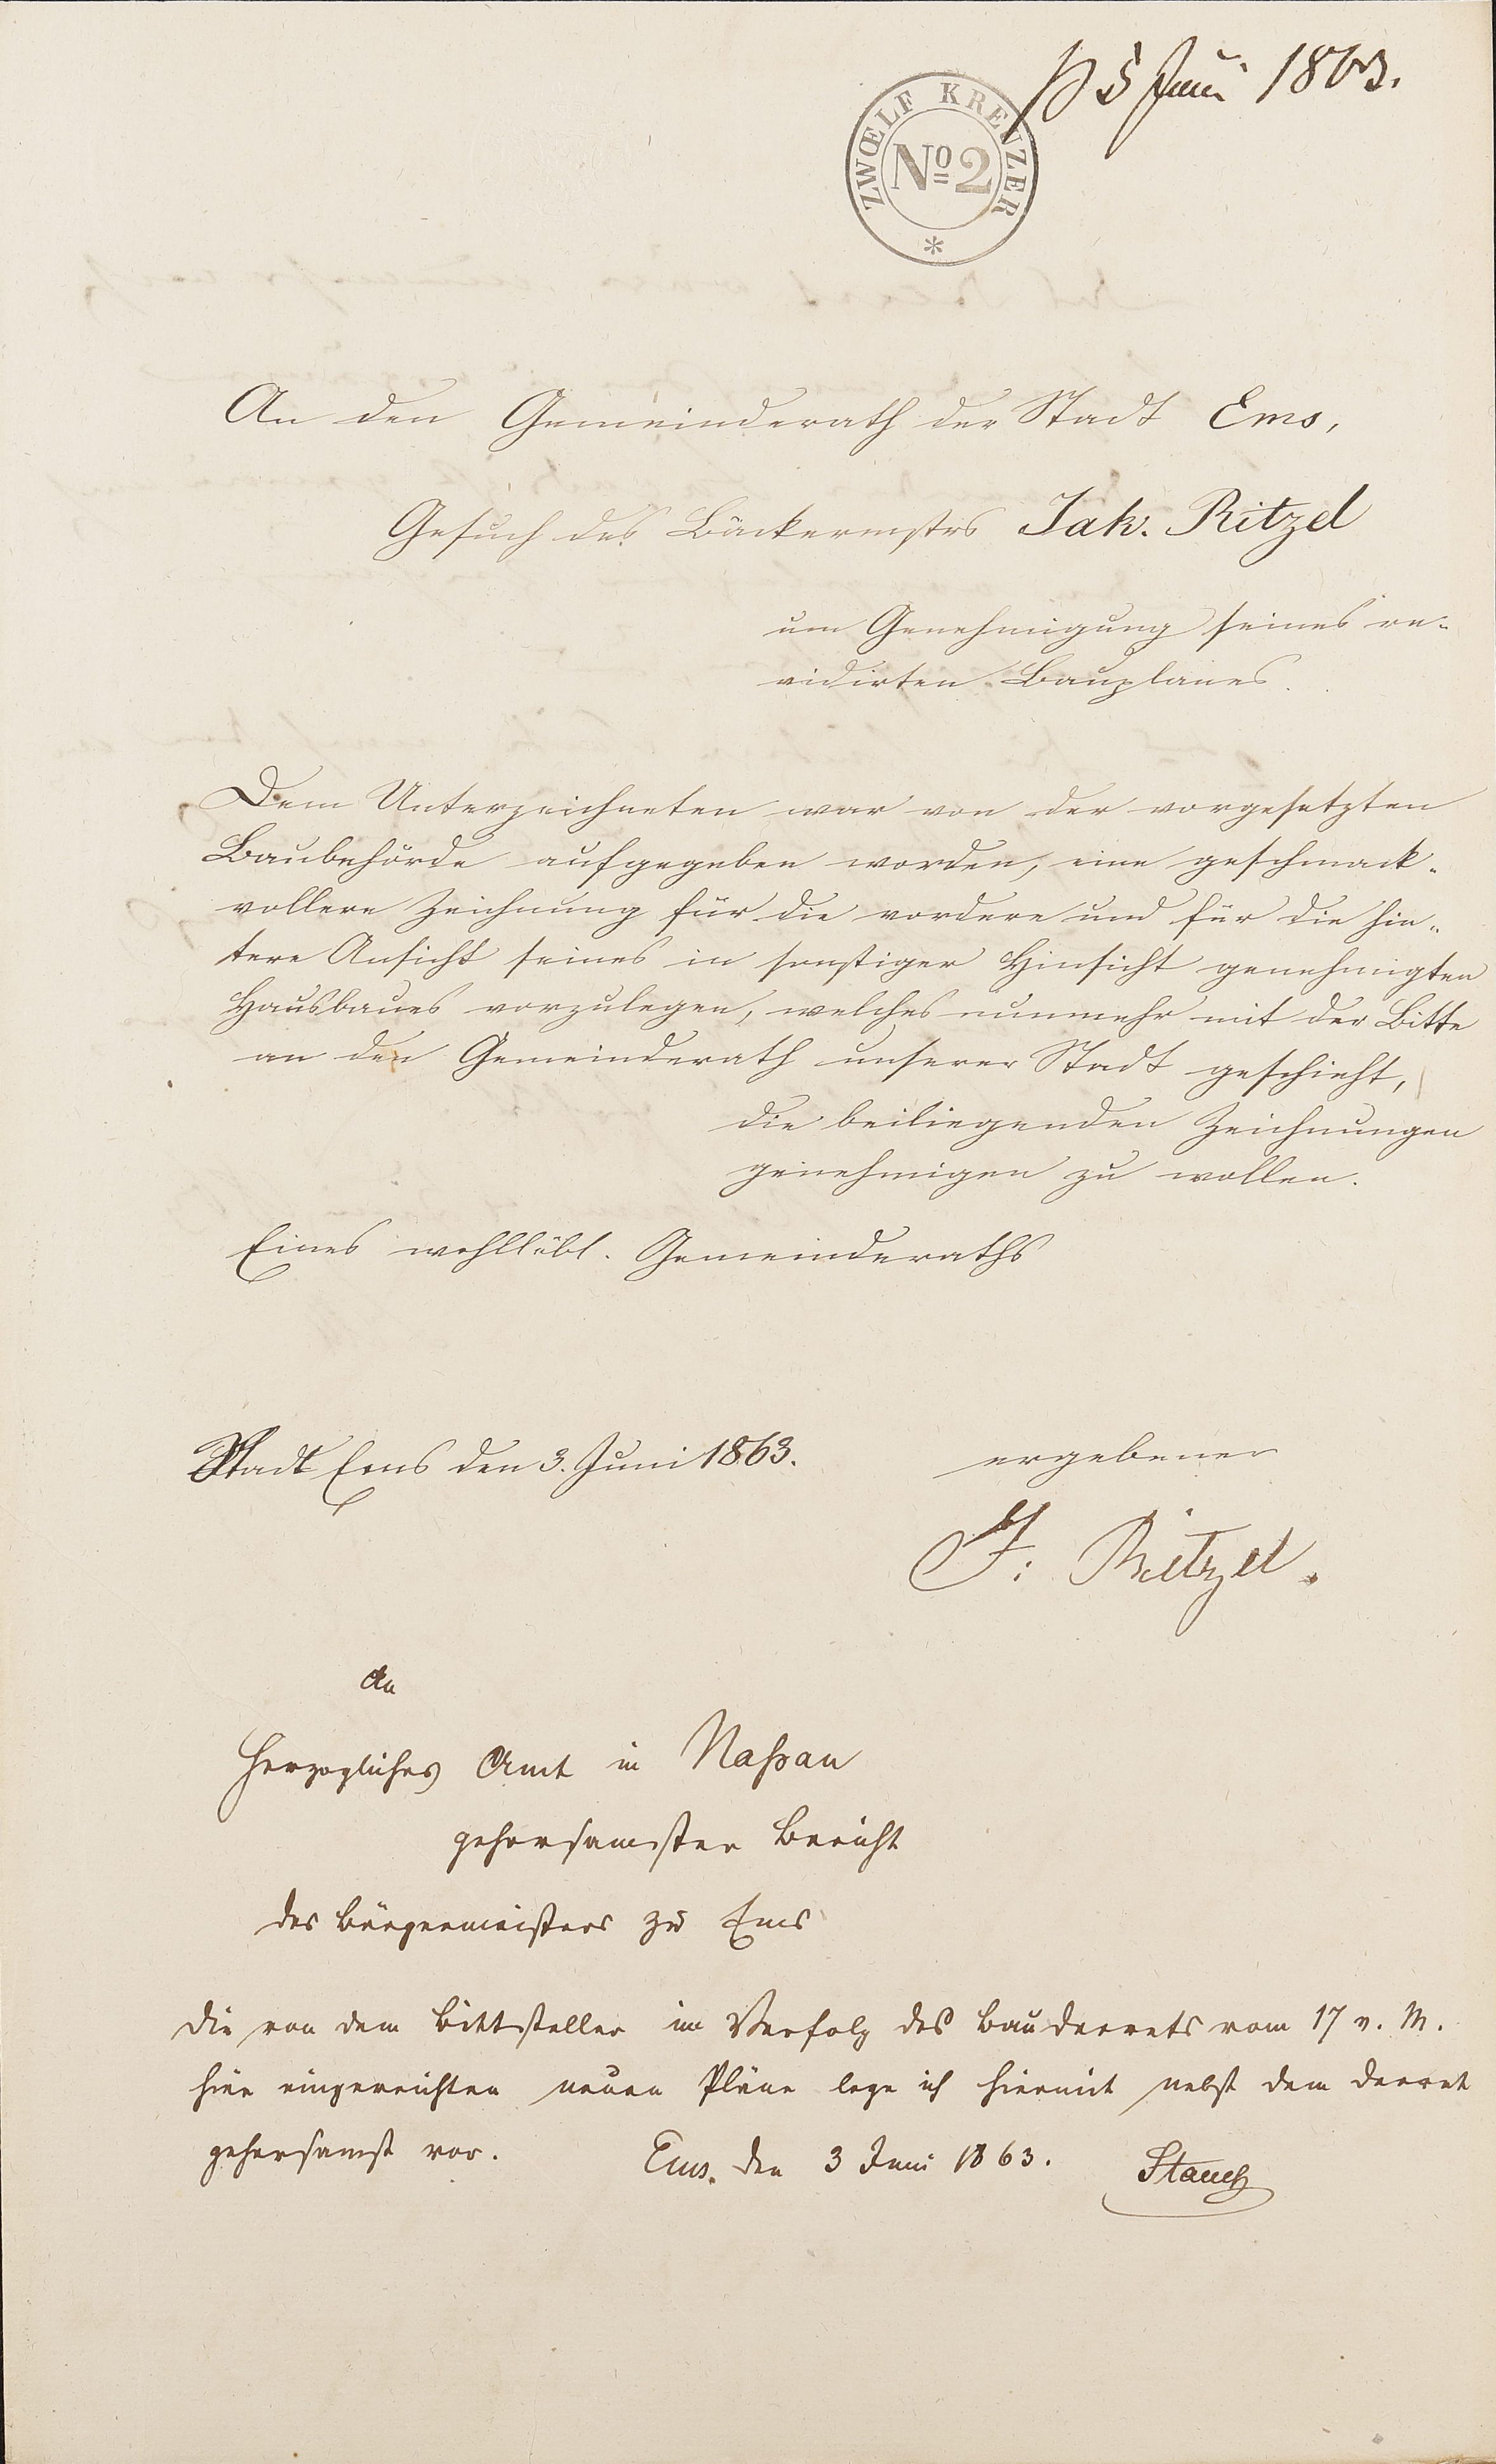 5 Juni 1863.
ZWŒLF KREUZER
No 2
An den Gemeinderath der Stadt Ems,
Gesuch des Bäckermstrs Jak. Ritzel
um Genehmigung seines re-
vidirten Bauplanes.
Dem Unterzeichneten war von der vorgesetzten
Baubehörde aufgegeben worden, eine geschmack-
vollere Zeichnung für die vordere und für die hin-
tere Ansicht seines in sonstiger Hinsicht genehmigten
Hausbaues vorzulegen, welches nunmehr mit der Bitte
an den Gemeinderath unserer Stadt geschieht,
die beiliegenden Zeichnungen
genehmigen zu wollen.
Eines wohllöbl. Gemeinderaths
Stadt Ems den 3. Juni 1863.
ergebener
J: Ritzel.
An
Herzogliches Amt in Naßau
gehorsamster Bericht
des Bürgermeisters zu Ems
Die von dem Bittsteller im Verfolg des Baudecrets vom 17 v. M.
hier eingereichten neuen Pläne lege ich hiermit nebst dem Decret
gehorsamst vor.
Ems. den 3 Juni 1863.